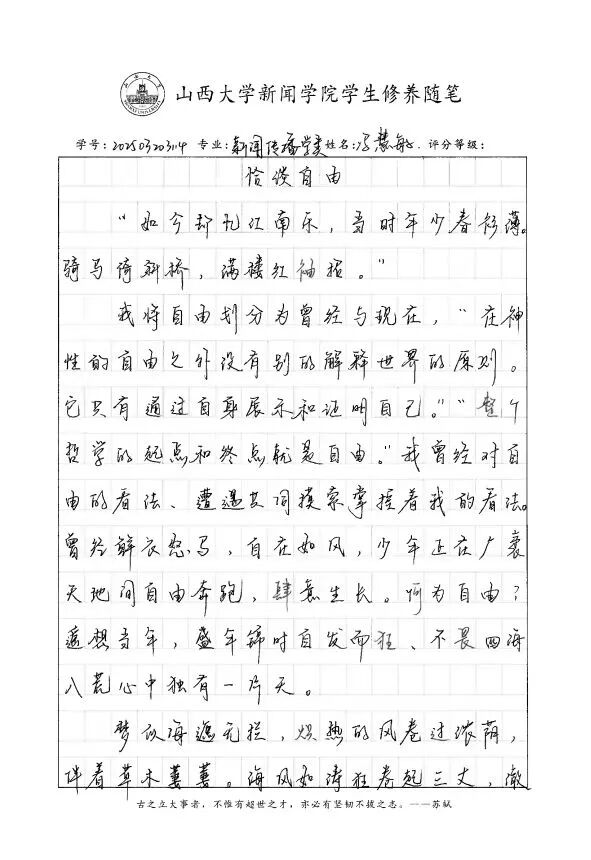 山西大学新闻学院学生修养随笔
学号：202503203114 专业：新闻传播学类 姓名：冯慧敏 评分等级：
恰谈自由
“如今却忆江南乐，当时年少春衫薄。
骑马倚斜桥，满楼红袖招。”
我将自由划分为曾经与现在，“在神
性的自由之外没有别的解释世界的原则。
它只有通过自身展示和证明自己。”“整个
哲学的起点和终点就是自由。”我曾经对自
由的看法、遭遇共同摸索掌握着我的看法。
曾经鲜衣怒马，自在如风，少年正在广袤
天地间自由奔跑，肆意生长。何为自由？
遥想当年，盛年锦时自发而狂、不畏四海
八荒心中独有一片天。
梦似海遥无拦，炽热的风卷过浓荫，
伴着草木萋萋。海风如涛狂卷起三丈，激
古之立大事者，不惟有超世之才，亦必有坚韧不拔之志。——苏轼